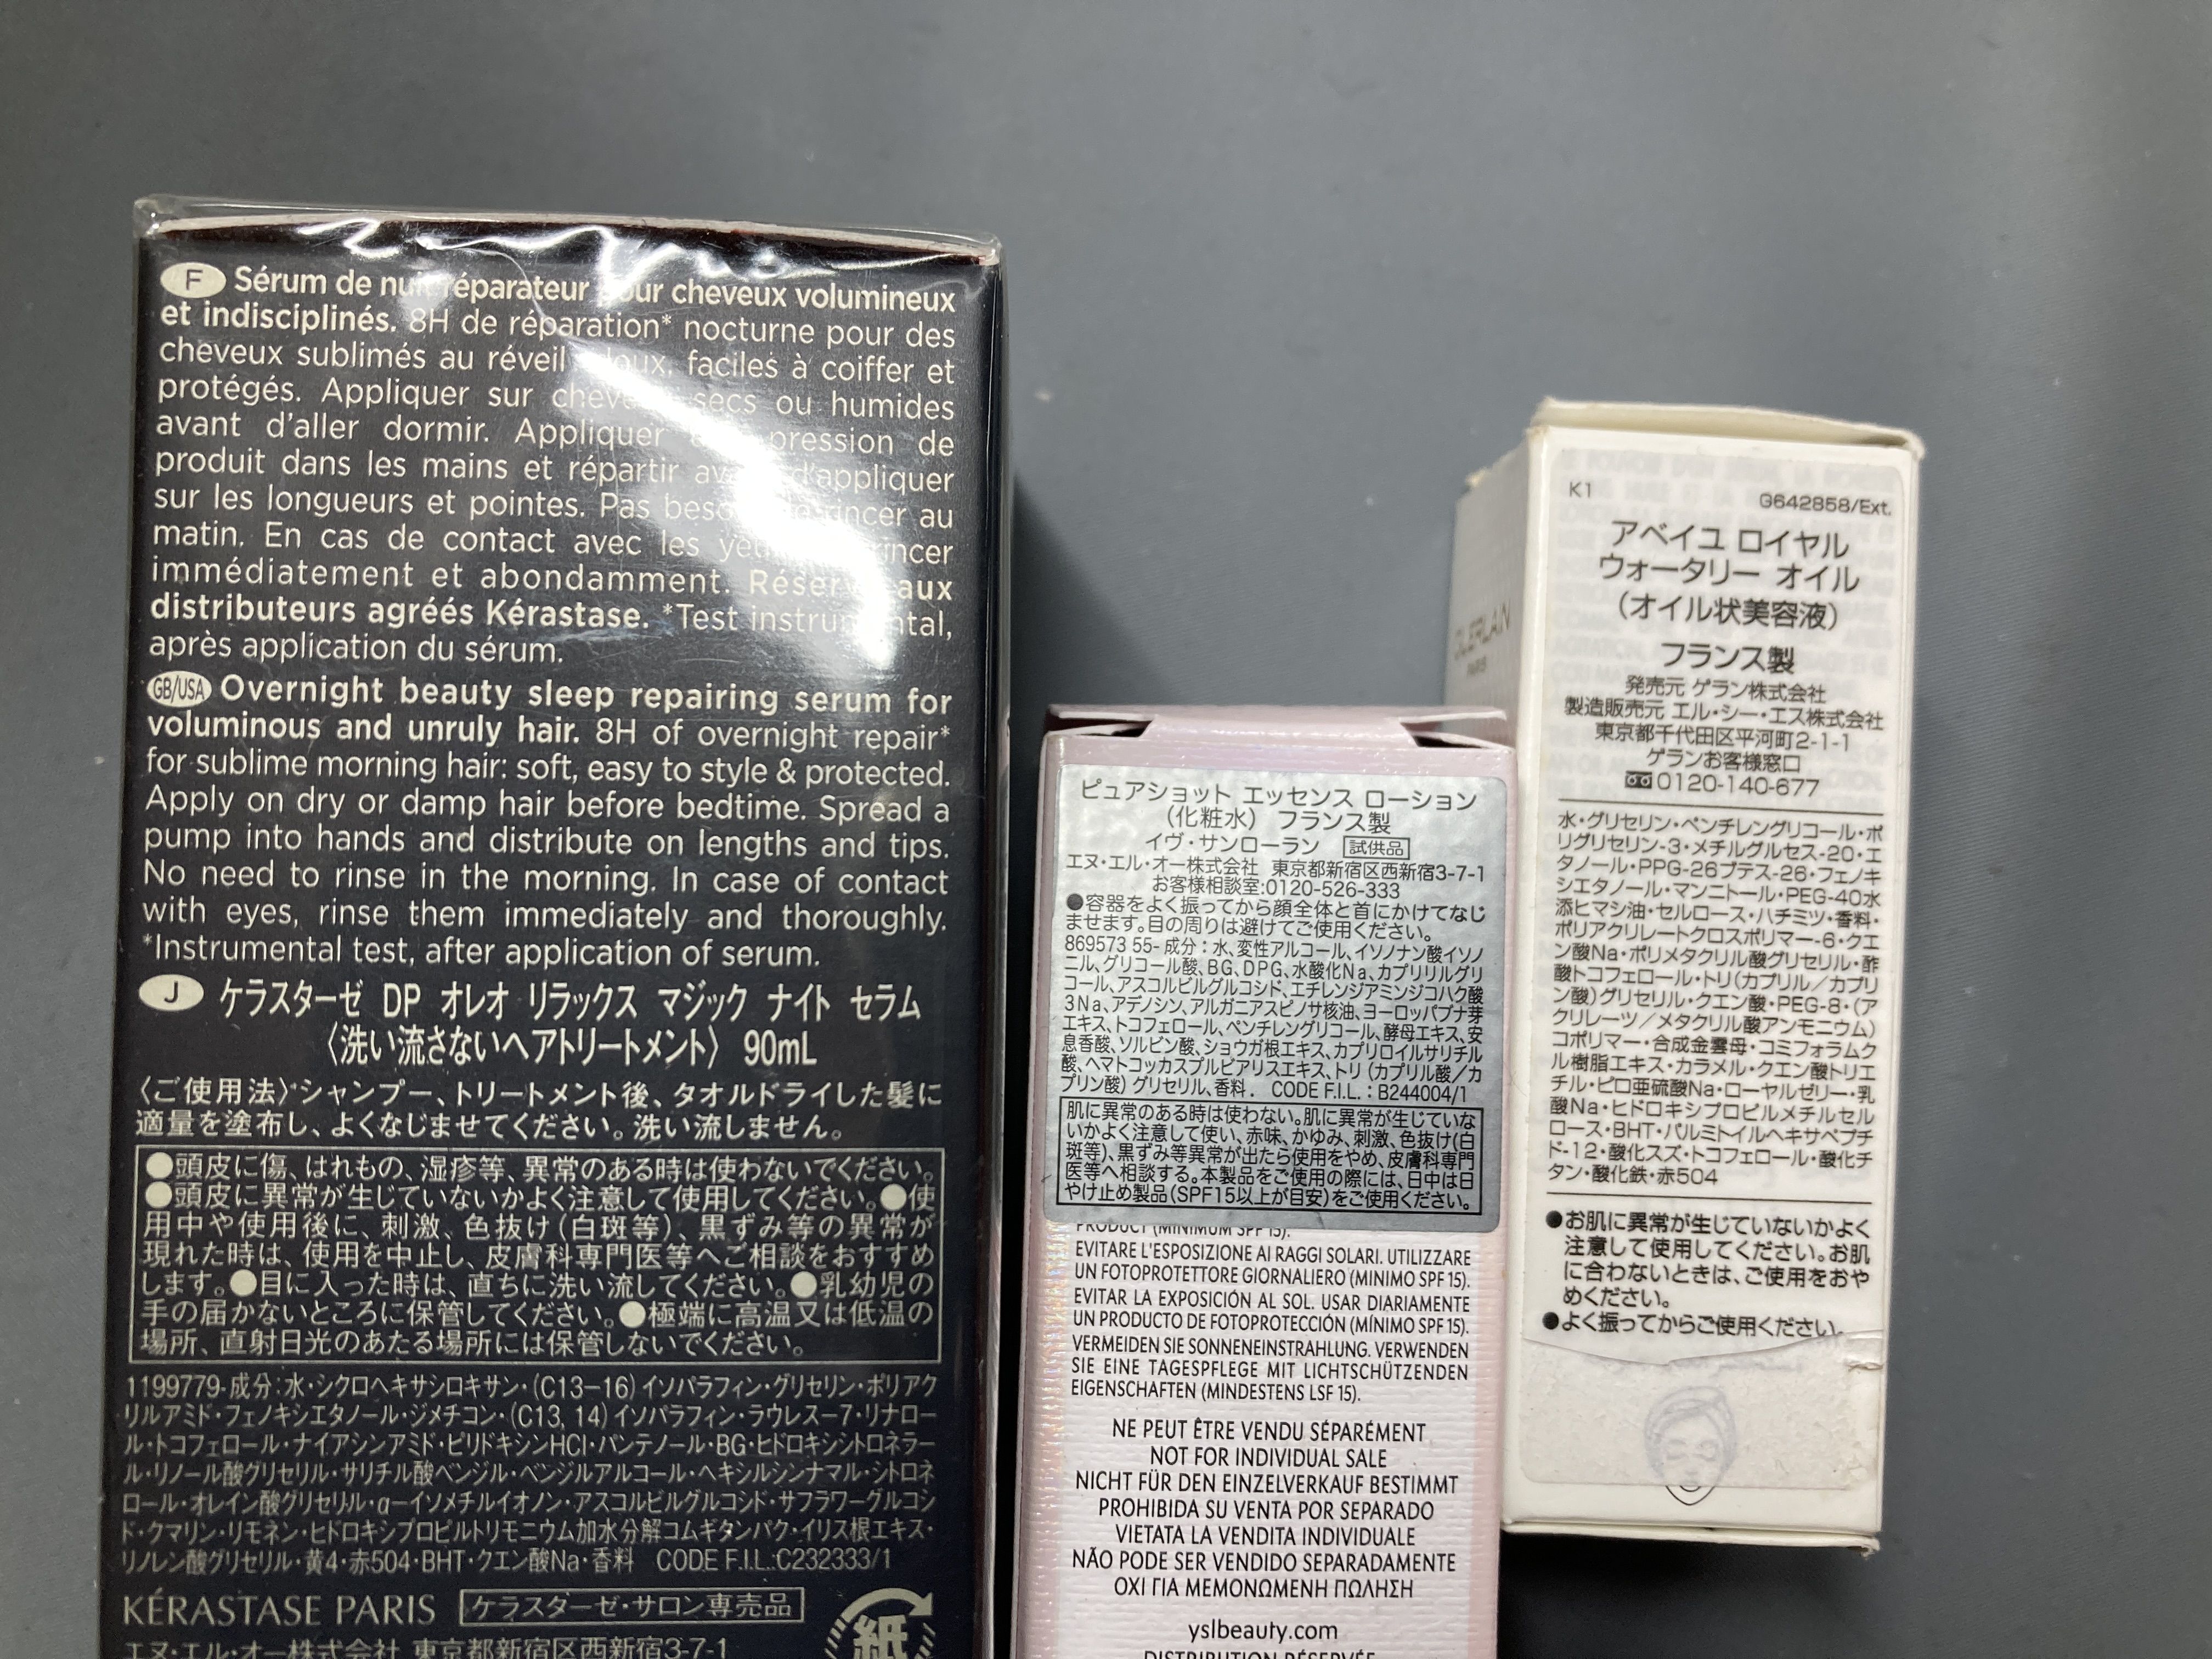 F Sérum de nuit réparateur pour cheveux volumineux
et indisciplinés. 8H de réparation* nocturne pour des
cheveux sublimés au réveil doux, faciles à coiffer et
protégés. Appliquer sur cheveux secs ou humides
avant d'aller dormir. Appliquer pression de
produit dans les mains et répartir avant d'appliquer
sur les longueurs et pointes. Pas besoin de rincer au
matin. En cas de contact avec les yeux rincer
immédiatement et abondamment. Réservé aux
distributeurs agréés Kérastase. *Test instrumental,
après application du sérum.
GB/USA Overnight beauty sleep repairing serum for
voluminous and unruly hair. 8H of overnight repair*
for sublime morning hair: soft, easy to style & protected.
Apply on dry or damp hair before bedtime. Spread a
pump into hands and distribute on lengths and tips.
No need to rinse in the morning. In case of contact
with eyes, rinse them immediately and thoroughly.
*Instrumental test, after application of serum.
J ケラスターゼ DP オレオ リラックス マジック ナイト セラム
〈洗い流さないヘアトリートメント〉 90mL
〈ご使用法〉シャンプー、トリートメント後、タオルドライした髪に
適量を塗布し、よくなじませてください。洗い流しません。
●頭皮に傷、はれもの、湿疹等、異常のある時は使わないでください。
●頭皮に異常が生じていないかよく注意して使用してください。●使
用中や使用後に、刺激、色抜け(白斑等)、黒ずみ等の異常が
現れた時は、使用を中止し、皮膚科専門医等へご相談をおすすめ
します。●目に入った時は、直ちに洗い流してください。●乳幼児の
手の届かないところに保管してください。●極端に高温又は低温の
場所、直射日光のあたる場所には保管しないでください。
1199779-成分:水・シクロヘキサシロキサン・(C13-16)イソパラフィン・グリセリン・ポリアク
リルアミド・フェノキシエタノール・ジメチコン・(C13, 14)イソパラフィン・ラウレス-7・リナロー
ル・トコフェロール・ナイアシンアミド・ピリドキシンHCl・パンテノール・BG・ヒドロキシシトロネラー
ル・リノール酸グリセリル・サリチル酸ベンジル・ベンジルアルコール・ヘキシルシンナマル・シトロネ
ロール・オレイン酸グリセリル・α-イソメチルイオノン・アスコルビルグルコシド・サフラワーグルコシ
ド・クマリン・リモネン・ヒドロキシプロピルトリモニウム加水分解コムギタンパク・イリス根エキス・
リノレン酸グリセリル・黄4・赤504・BHT・クエン酸Na・香料 CODE F.I.L.:C232333/1
KÉRASTASE PARIS ケラスターゼ・サロン専売品
エヌ・エル・オー株式会社 東京都新宿区西新宿3-7-1
紙
ピュアショット エッセンス ローション
(化粧水) フランス製
イヴ・サンローラン 試供品
エヌ・エル・オー株式会社 東京都新宿区西新宿3-7-1
お客様相談室:0120-526-333
●容器をよく振ってから顔全体と首にかけてなじ
ませます。目の周りは避けてご使用ください。
869573 55- 成分:水、変性アルコール、イソノナン酸イソノ
ニル、グリコール酸、BG、DPG、水酸化Na、カプリリルグリ
コール、アスコルビルグルコシド、エチレンジアミンジコハク酸
3Na、アデノシン、アルガニアスピノサ核油、ヨーロッパブナ芽
エキス、トコフェロール、ペンチレングリコール、酵母エキス、安
息香酸、ソルビン酸、ショウガ根エキス、カプリロイルサリチル
酸、ヘマトコッカスプルビアリスエキス、トリ(カプリル酸/カ
プリン酸)グリセリル、香料. CODE F.I.L. : B244004/1
肌に異常のある時は使わない。肌に異常が生じていな
いかよく注意して使い、赤味、かゆみ、刺激、色抜け(白
斑等)、黒ずみ等異常が出たら使用をやめ、皮膚科専門
医等へ相談する。本製品をご使用の際には、日中は日
やけ止め製品(SPF15以上が目安)をご使用ください。
PRODUCT (MINIMUM SPF 15).
EVITARE L'ESPOSIZIONE AI RAGGI SOLARI. UTILIZZARE
UN FOTOPROTETTORE GIORNALIERO (MINIMO SPF 15).
EVITAR LA EXPOSICIÓN AL SOL. USAR DIARIAMENTE
UN PRODUCTO DE FOTOPROTECCIÓN (MÍNIMO SPF 15).
VERMEIDEN SIE SONNENEINSTRAHLUNG. VERWENDEN
SIE EINE TAGESPFLEGE MIT LICHTSCHÜTZENDEN
EIGENSCHAFTEN (MINDESTENS LSF 15).
NE PEUT ÊTRE VENDU SÉPARÉMENT
NOT FOR INDIVIDUAL SALE
NICHT FÜR DEN EINZELVERKAUF BESTIMMT
PROHIBIDA SU VENTA POR SEPARADO
VIETATA LA VENDITA INDIVIDUALE
NÃO PODE SER VENDIDO SEPARADAMENTE
ΟΧΙ ΓΙΑ ΜΕΜΟΝΩΜΕΝΗ ΠΩΛΗΣΗ
yslbeauty.com
DISTRIBUTION RÉSERVÉE
GUERLAIN
PARIS
K1 G642858/Ext.
アベイユ ロイヤル
ウォータリー オイル
(オイル状美容液)
フランス製
発売元 ゲラン株式会社
製造販売元 エル・シー・エス株式会社
東京都千代田区平河町2-1-1
ゲランお客様窓口
0120-140-677
水・グリセリン・ペンチレングリコール・ポ
リグリセリン-3・メチルグルセス-20・エ
タノール・PPG-26ブテス-26・フェノキ
シエタノール・マンニトール・PEG-40水
添ヒマシ油・セルロース・ハチミツ・香料・
ポリアクリレートクロスポリマー-6・クエ
ン酸Na・ポリメタクリル酸グリセリル・酢
酸トコフェロール・トリ(カプリル/カプリ
ン酸)グリセリル・クエン酸・PEG-8・(ア
クリレーツ/メタクリル酸アンモニウム)
コポリマー・合成金雲母・コミフォラムク
ル樹脂エキス・カラメル・クエン酸トリエ
チル・ピロ亜硫酸Na・ローヤルゼリー・乳
酸Na・ヒドロキシプロピルメチルセル
ロース・BHT・パルミトイルヘキサペプチ
ド-12・酸化スズ・トコフェロール・酸化チ
タン・酸化鉄・赤504
●お肌に異常が生じていないかよく
注意して使用してください。お肌
に合わないときは、ご使用をおや
めください。
●よく振ってからご使用ください。